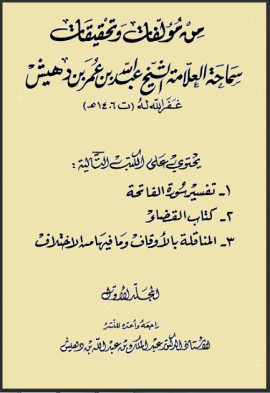 من مؤلفات وتحقيقات
سماحة العلامة الشيخ عبد الله بن عمر بن دهيش
غفر الله له (ت ١٤٠٦ هـ)
يحتوي على الكتب التالية :
١- تفسير سورة الفاتحة
٢- كتاب القضاء
٣- المناقلة بالأوقاف وما فيها من الاختلاف
المجلد الأول
راجعه وأعده للنشر
الأستاذ الدكتور عبد الملك بن عبد الله بن دهيش